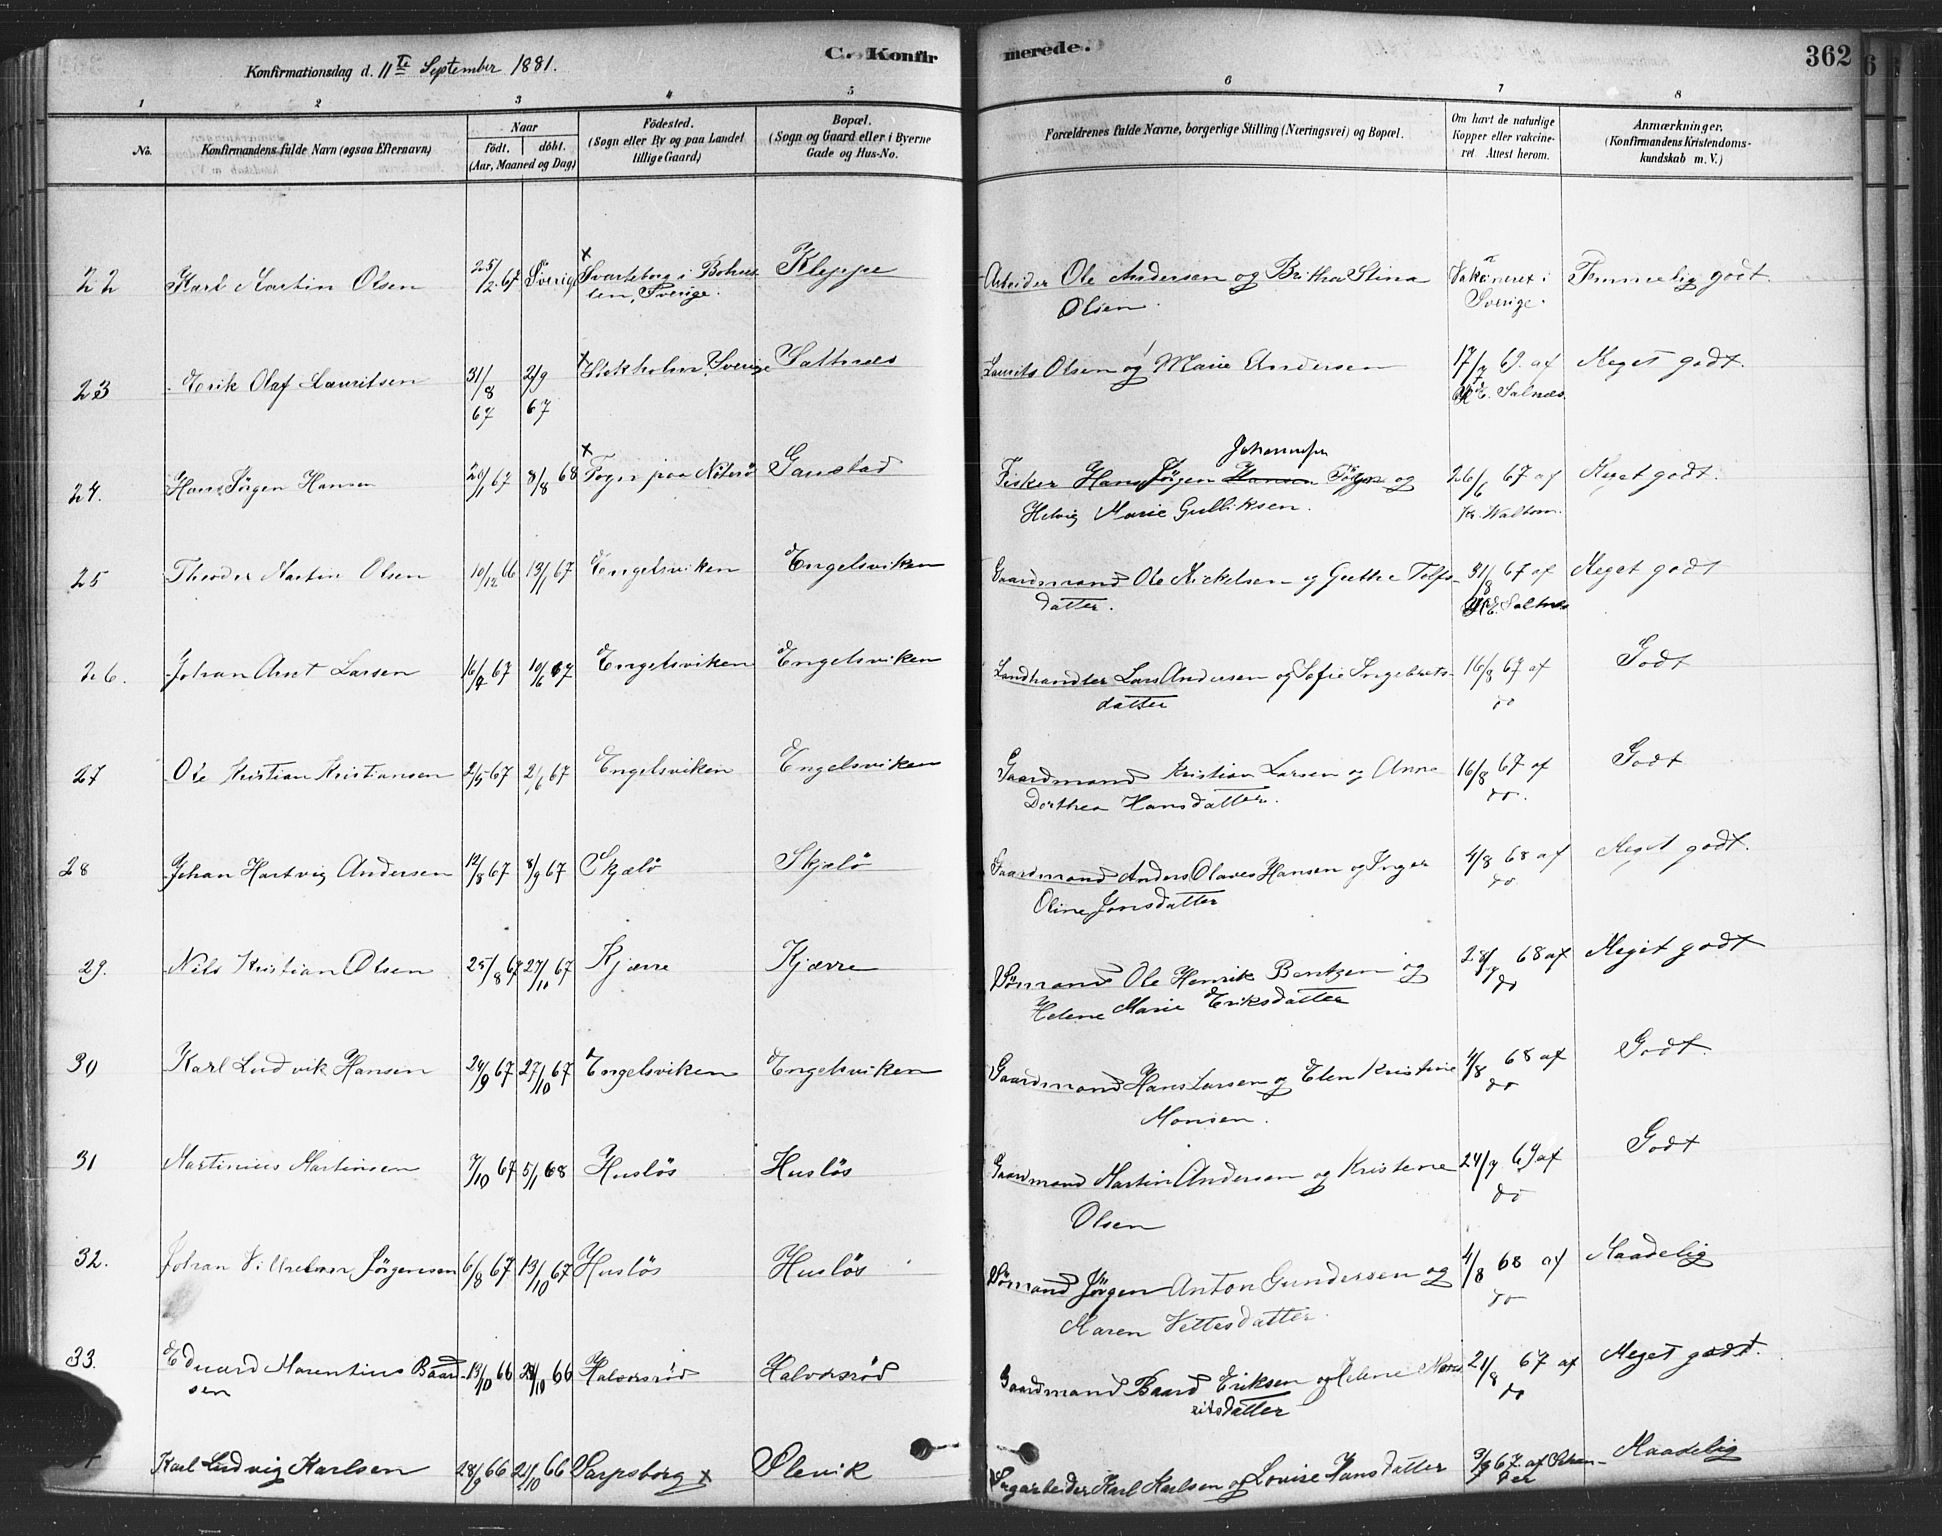 Konfirmationsdag d. 11te September 1881.
C. Konfirmerede.
362
1 2 3 4 5 6 7 8
No.
Konfirmandens fulde Navn (ogsaa Efternavn)
Naar
födt. döbt.
(Aar, Maaned og Dag)
Födested.
(Sogn eller By og paa Landet
tillige Gaard)
Bopæl.
(Sogn og Gaard eller i Byerne
Gade og Hus-No.
Forældrenes fulde Navne, borgerlige Stilling (Næringsvei) og Bopæl.
Om havt de naturlige
Kopper eller vakcine-
ret Attest herom.
Anmærkninger.
(Konfirmandens Kristendoms-
kundskab m. V.)
22 Karl Martin Olsen 25/2 67 Sverige Svarteborg i Bohus- Kleppe Arbeider Ole Andersen og Britha Stina Vakcineret i Temmelig godt.
len, Sverige. Olsen. Sverige.
23 Erik Olaf Lauritsen 31/8 67 2/9 67 Stokholm, Sverige Saltnes Laurits Olsen og Marie Andersen 17/7 69. af Meget godt.
E. Salnes.
24. Hans Jørgen Hansen 20/1 67 8/8 68 paa Nøterø Gaustad Fisker Hans Jørgen Hansen Johannesen og 26/6 67 af Meget godt.
Helvig Marie Gulliksen.
25 Theodor Martin Olsen 10/12 66 13/1 67 Engelsviken Engelsviken Gaardmand Ole Mickelsen og Grethe Tolfs- 31/8 67 af Meget godt
datter. E. Saltnes
26. Johan Arnt Larsen 16/4 67 10/6 67 Engelsviken Engelsviken Landhandler Lars Andersen og Sofie Ingebrets- 16/8 67 af Godt
datter do
27 Ole Kristian Kristiansen 2/5 67 2/6 67 Engelsviken Engelsviken Gaardmand Kristian Larsen og Anne 16/8 67 af Godt
Dorthea Hansdatter. do.
28 Johan Hartvig Andersen 12/8 67 8/9 67 Skjælø Skjælø Gaardmand Anders Olaves Hansen og Inger 4/8 68 af Meget godt.
Oline Jonsdatter do
29. Nils Kristian Olsen 25/8 67 27/10 67 Kjærre Kjærre Sømand Ole Henrik Bentzen og 28/7 68 af Meget godt
Helene Marie Eriksdatter do
30 Karl Ludvik Hansen 24/9 67 27/10 67 Engelsviken Engelsviken Gaardmand Hans Larsen og Elen Kristine 4/8 68 af Godt.
Monsen. do
31 Martinius Martinsen 7/10 67 5/1 68 Husløs Husløs Gaardmand Martin Andersen og Kristene 24/7 69 af Godt
Olsen do
32. Johan Vilhelm Jørgensen 6/8 67 13/10 67 Husløs Husløs Sømand Jørgen Anton Gundersen og 4/8 68 af Maadelig
Maren Vettesdatter. do
33. Eduard Marentius Baard- 13/10 66 66 Halvorsrød Halvorsrød Gaardmand Baard Eriksen og Helene Mau- 21/8 67 af Meget godt.
sen ritsdatter do
Karl Ludvig Karlsen 28/9 66 21/10 66 Sarpsborg x Slevik Sagarbeider Karl Karlsen og Lovise Hansdatter 67. af Maadelig